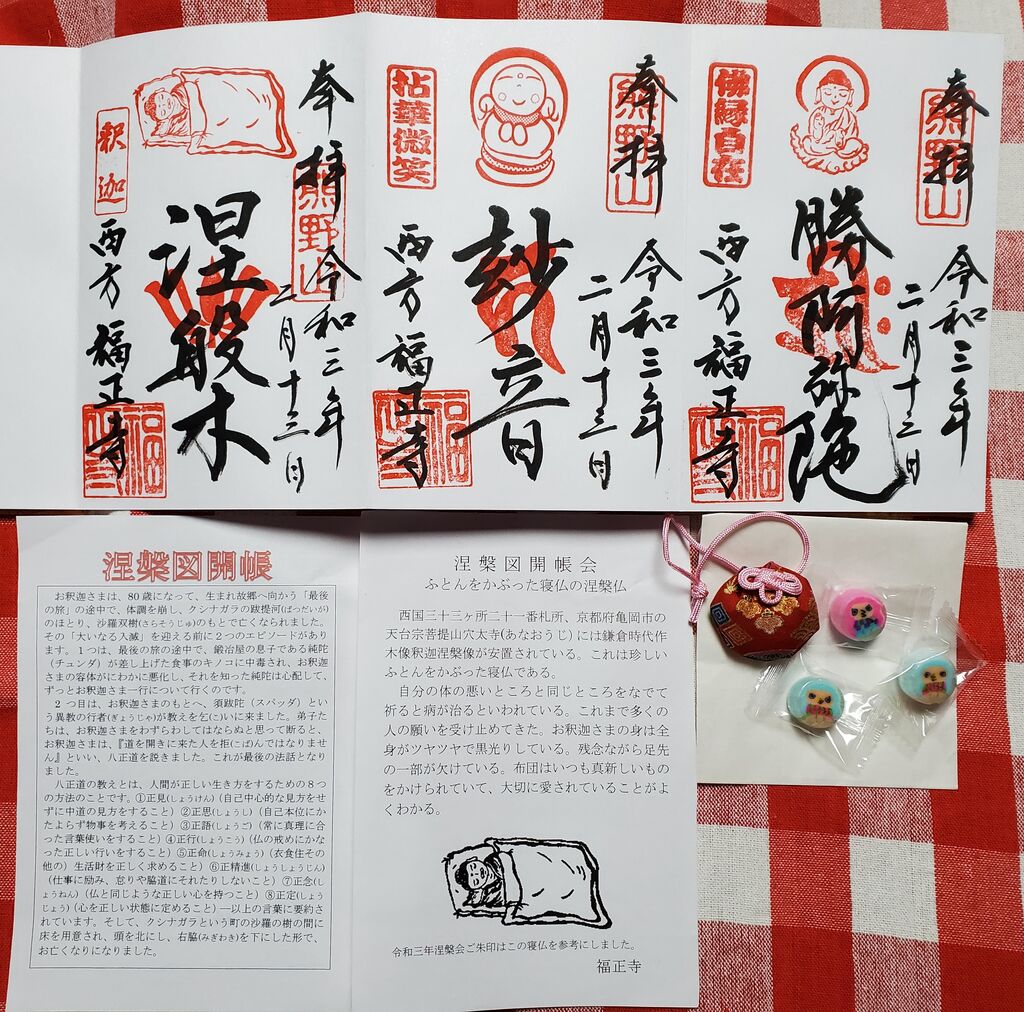 奉拝
熊野山
佛縁自在
令和三年
二月十三日
勝阿弥陀
西方
福正寺
奉拝
熊野山
拈華微笑
令和三年
二月十三日
妙音
西方
福正寺
奉拝
熊野山
釈迦
令和三年
二月十三日
涅般木
西方
福正寺
涅槃図開帳
お釈迦さまは、80歳になって、生まれ故郷へ向かう「最後
の旅」の途中で、体調を崩し、クシナガラの跋提河(ばつだいが)
のほとり、沙羅双樹(さらそうじゅ)のもとで亡くなられました。
その「大いなる入滅」を迎える前に2つのエピソードがあり
ます。1つは、最後の旅の途中で、鍛冶屋の息子である純陀
(チュンダ)が差し上げた食事のキノコに中毒され、お釈迦さ
まの容体がにわかに悪化し、それを知った純陀は心配して、
ずっとお釈迦さま一行について行くのです。
2つ目は、お釈迦さまのもとへ、須跋陀(スバッダ)とい
う異教の行者(ぎょうじゃ)が教えを乞(こ)いに来ました。弟子た
ちは、お釈迦さまをわずらわしてはならぬと思って断ると、
お釈迦さまは、『道を開きに来た人を拒(こば)んではなりませ
ん』といい、八正道を説きました。これが最後の法話となり
ました。
八正道の教えとは、人間が正しい生き方をするための8つ
の方法のことです。①正見(しょうけん)(自己中心的な見方をせ
ずに中道の見方をすること)②正思(しょうし)(自己本位にか
たよらず物事を考えること)③正語(しょうご)(常に真理に合
った言葉使いをすること)④正行(しょうこう)(仏の戒めにかな
った正しい行いをすること)⑤正命(しょうみょう)(衣食住その
他の)生活財を正しく求めること)⑥正精進(しょうしょうじん)
(仕事に励み、怠りや脇道にそれたりしないこと)⑦正念(し
ょうねん)(仏と同じような正しい心を持つこと)⑧正定(しょう
じょう)(心を正しい状態に定めること)―以上の言葉に要約さ
れています。そして、クシナガラという町の沙羅の樹の間に
床を用意され、頭を北にし、右脇(みぎわき)を下にした形で、
お亡くなりになりました。
涅槃図開帳会
ふとんをかぶった寝仏の涅槃仏
西国三十三ヶ所二十一番札所、京都府亀岡市の
天台宗菩提山穴太寺(あなおうじ)には鎌倉時代作
木像釈迦涅槃像が安置されている。これは珍しい
ふとんをかぶった寝仏である。
自分の体の悪いところと同じところをなでて
祈ると病が治るといわれている。これまで多くの
人の願いを受け止めてきた。お釈迦さまの身は全
身がツヤツヤで黒光りしている。残念ながら足先
の一部が欠けている。布団はいつも真新しいもの
をかけられていて、大切に愛されていることがよ
くわかる。
令和三年涅槃会ご朱印はこの寝仏を参考にしました。
福正寺